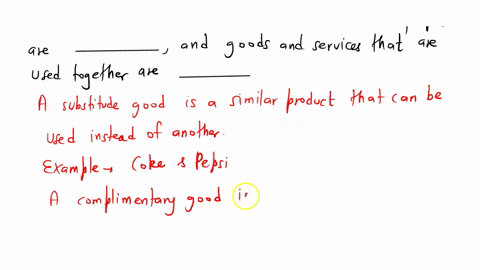 are ________, and goods and services that are
used together are ________
A substitute good is a similar product that can be
used instead of another.
Example → Coke & Pepsi
A complimentary good is